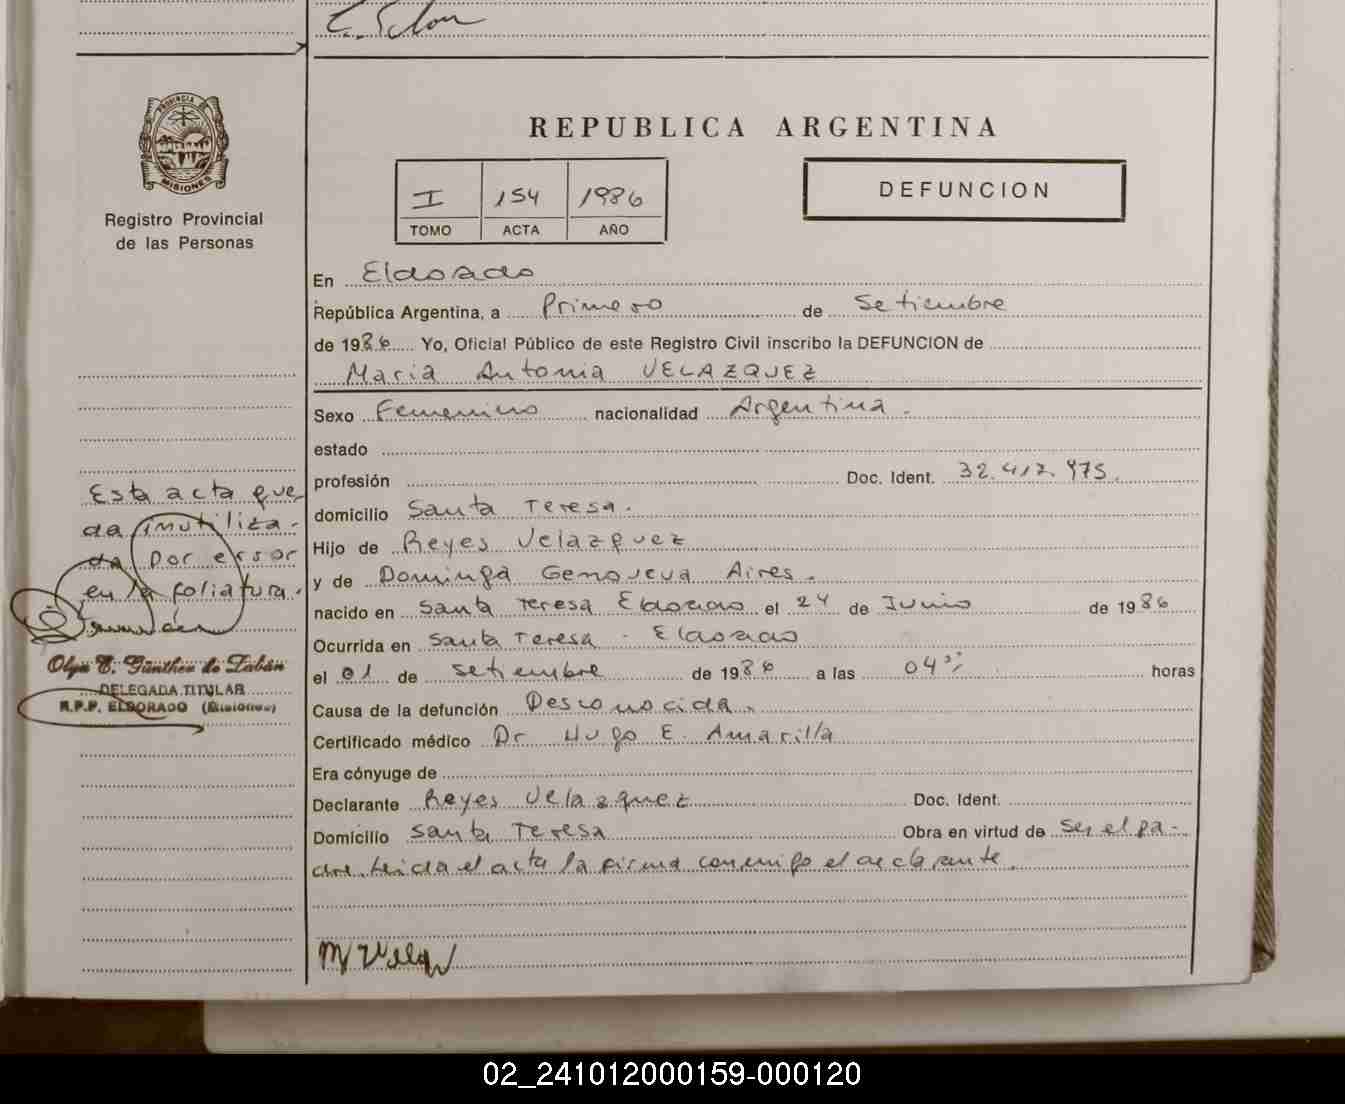 E. Selou
REPUBLICA ARGENTINA
PROVINCIA DE
MISIONES
Registro Provincial
de las Personas
I 154 1986
TOMO ACTA AÑO
DEFUNCION
En Eldorado
República Argentina, a Primero de Setiembre
de 1986 Yo, Oficial Público de este Registro Civil inscribo la DEFUNCION de
Maria Antonia VELAZQUEZ
Sexo Femenino nacionalidad Argentina.
estado
profesión Doc. Ident. 32.412.975.
domicilio Santa Teresa.
Hijo de Reyes Velazquez
y de Dominga Genoveva Aires.
nacido en Santa Teresa Eldorado el 24 de Junio de 1986
Ocurrida en Santa Teresa - Eldorado
el 01 de setiembre de 1986 a las 04 horas
Causa de la defunción Desconocida.
Certificado médico Dr Hugo E. Amarilla
Era cónyuge de
Declarante Reyes Velazquez Doc. Ident.
Domicilio Santa Teresa Obra en virtud de Ser el pa-
dre. leida el acta la firma conmigo el declarante.
Esta acta que
da inutiliza-
da por error
en la foliatura.
Olga E. Günther de Zabán
DELEGADA TITULAR
R.P.P. ELDORADO (Misiones)
02_241012000159-000120